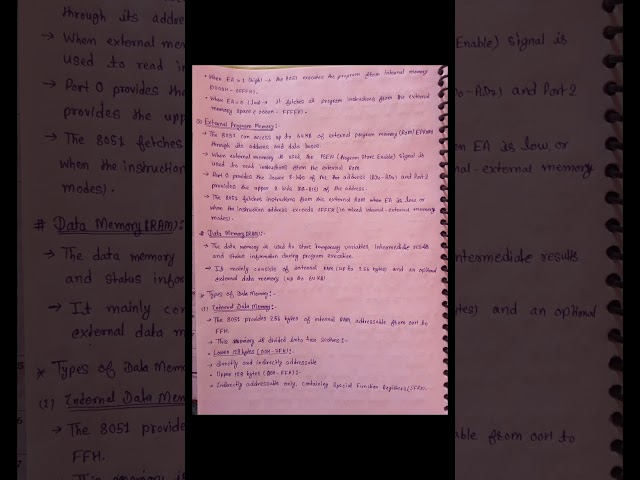 • When EA = 1 (high) → the 8051 executes the program from internal memory
(0000H - 0FFFH).
• When EA = 0 (low) → it fetches all program instructions from the external
memory space (0000H - FFFFH).
(2) External Program Memory:-
→ The 8051 can access up to 64KB of external program memory (ROM/EPROM)
through its address and data buses.
→ When external memory is used, the PSEN (Program Store Enable) signal is
used to read instructions from the external ROM.
→ Port 0 provides the lower 8-bits of the address (AD0-AD7) and Port 2
provides the upper 8 bits (A8-A15) of the address.
→ The 8051 fetches instructions from this external ROM when EA is low or
when the instruction address exceeds 0FFFH (in mixed internal-external memory
modes).
# Data Memory (RAM):-
→ The data memory is used to store temporary variables, intermediate results
and status information during program execution.
→ It mainly consists of internal RAM (up to 256 bytes) and an optional
external data memory (up to 64KB).
* Types of Data Memory:-
(1) Internal Data Memory:-
→ The 8051 provides 256 bytes of internal RAM, addressable from 00H to
FFH.
→ This memory is divided into two sections:-
• Lower 128 bytes (00H-7FH):-
→ directly and indirectly addressable
• Upper 128 bytes (80H-FFH):-
→ Indirectly addressable only, containing Special Function Registers (SFRs).